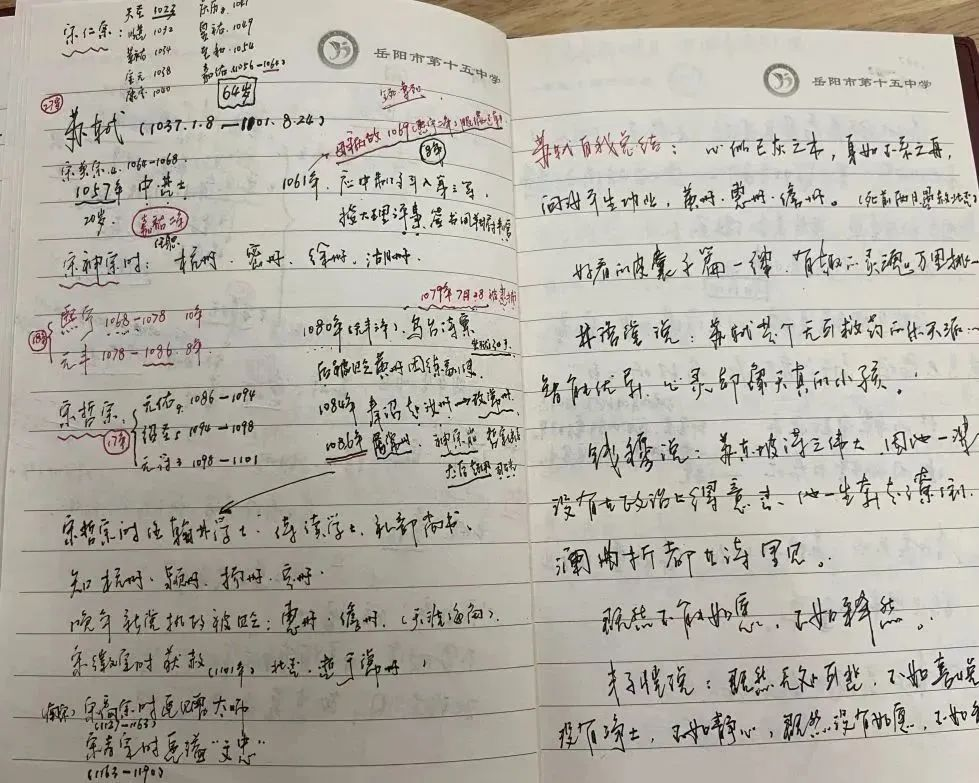 宋仁宗：天圣 1023
明道 1032
景祐 1034
宝元 1038
康定 1040
庆历 1041
皇祐 1049
至和 1054
嘉祐 (1056—1063)
64岁
岳阳市第十五中学
苏轼 (1037.1.8—1101.8.24)
宋英宗 1064—1068
1057年 中进士
20岁
嘉祐二年
1069 (熙宁二年)
1061年，应中制科入第三等，
授大理评事 签书凤翔府判官
宋神宗时：杭州、密州、徐州、湖州。
熙宁 1068—1078 10年
元丰 1078—1086 8年
18年
1079年7月28 被逮捕
1080年(元丰三年) 乌台诗案
后被贬黄州团练副使
1084年 奉诏赴汝州→改常州
1086年
神宗崩 哲宗
宋哲宗
元祐 1086—1094
绍圣 1094—1098
元符 1098—1101
宋哲宗时任翰林学士、侍读学士、礼部尚书、
知杭州、颍州、扬州、定州。
晚年新党执政被贬：惠州、儋州。(天涯海角)
宋徽宗时获赦 (1101年) 北还，逝于常州
(南宋) 宋高宗时追赠太师
(1127—1163)
宋孝宗时追谥“文忠”
(1163—1190)
岳阳市第十五中学
苏轼自我总结：心似已灰之木，身如不系之舟，
问汝平生功业，黄州、惠州、儋州。
好看的皮囊千篇一律，有趣的灵魂万里挑一
林语堂说：苏轼是个无可救药的乐天派…
智能优异，心灵却像天真的小孩。
钱穆说：苏东坡诗之伟大，因他一辈
没有在政治上得意过、他一生奔走潦倒、
澜曲折都在诗里见。
既然不能如愿，不如释然。
丰子恺说：既然无处可逃，不如喜悦
没有净土，不如静心，既然没有如愿，不如